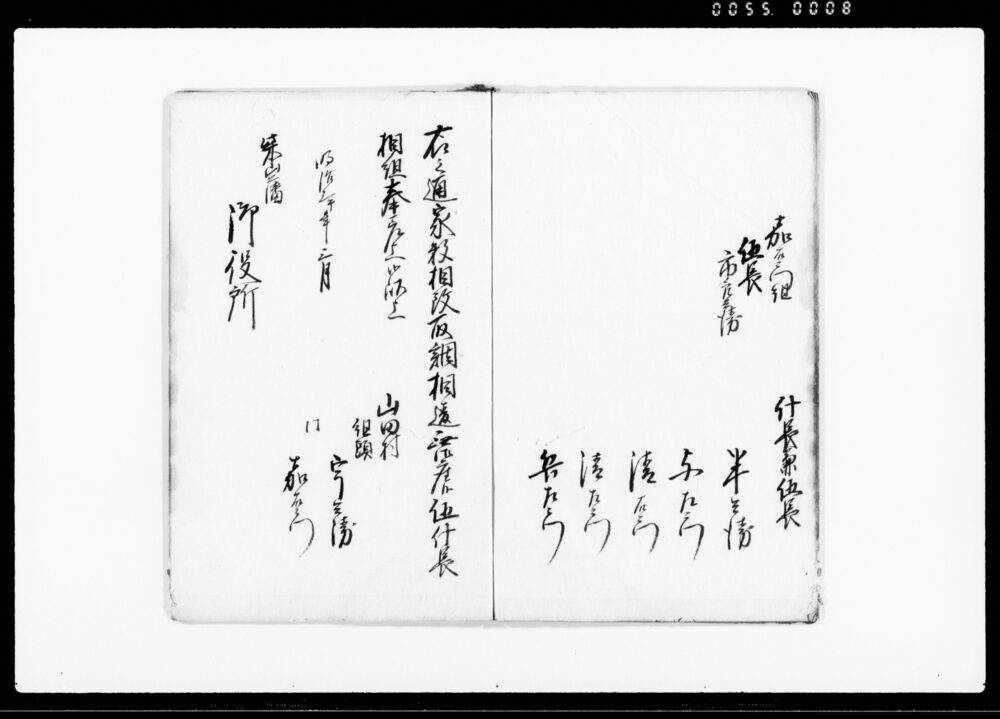 0055. 0008
嘉右衛門組
伍長
市兵衛
什長兼伍長
半兵衛
与左衛門
清右衛門
清左衛門
兵左衛門
右之通家数相改取調相違無御座伍什長
相組奉差上候以上
明治三午年二月
山田村
組頭
宇兵衛
同
嘉右衛門
柴山藩
御役所